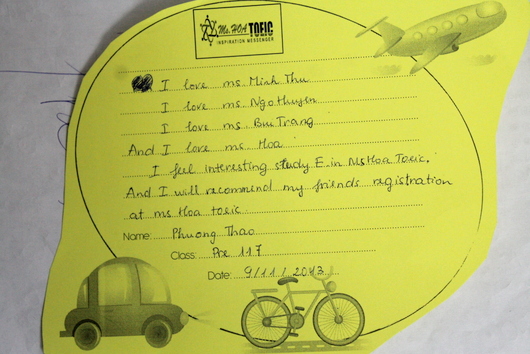 Ms. HOA TOEIC
INSPIRATION MESSENGER
I love ms Minh Thu
I love ms. Ngo Huyen
I love ms. Buu Trang
And I love ms. Hoa
I feel interesting study E. in Ms Hoa Toeic.
And I will recommend my friends registration
at ms Hoa toeic
Name: Phuong Thao
Class: Pre 117
Date: 9/11/2013